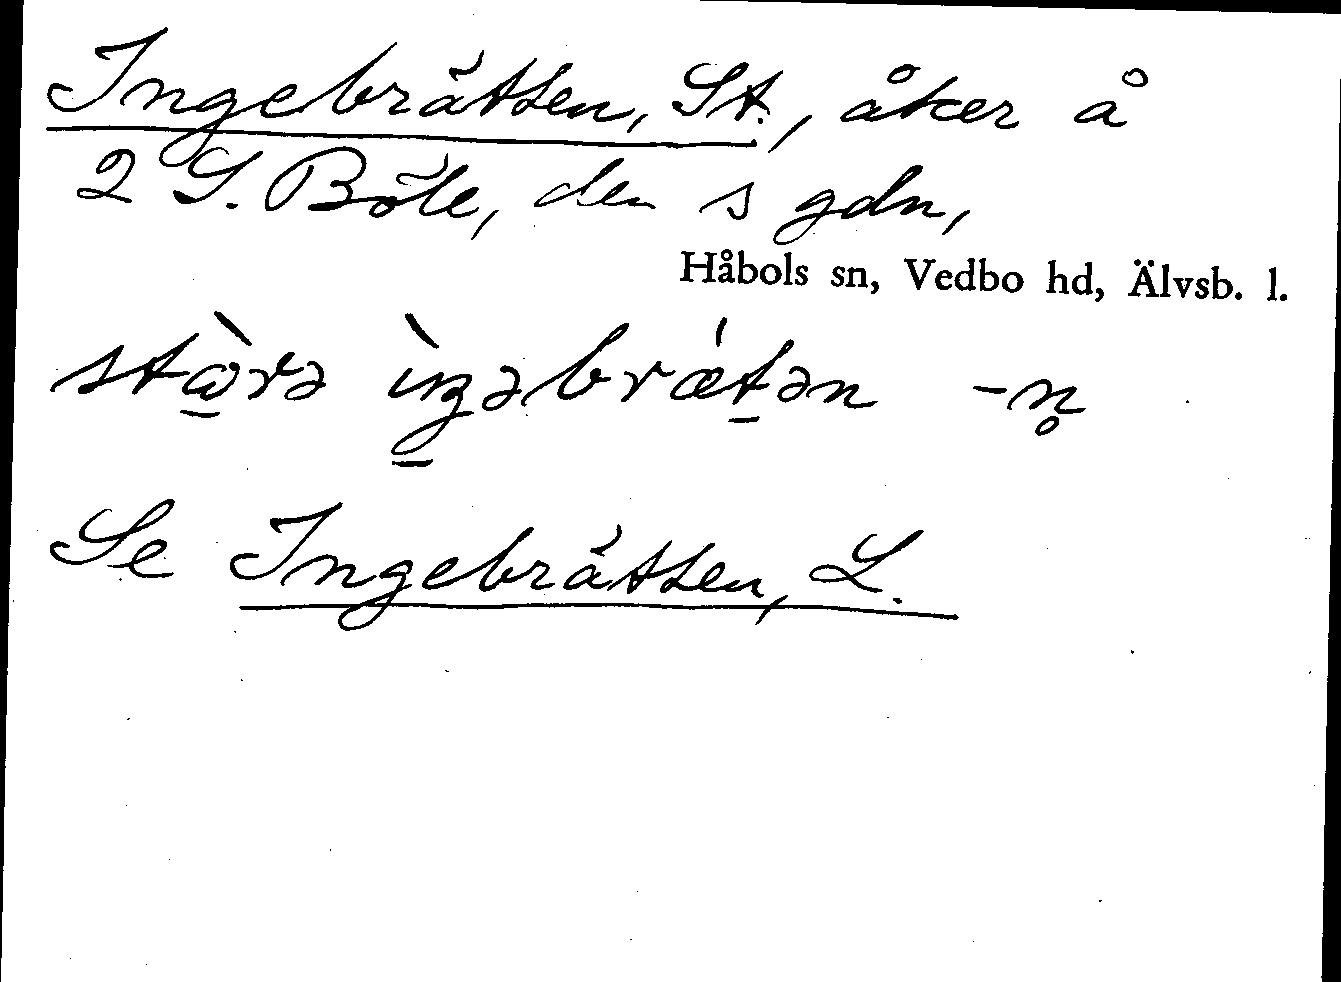 Ingebrätten, St., åker å
2 S. Böle, den s gdn,
Håbols sn, Vedbo hd, Älvsb. l.
stὼ̠rə ìŋ̠əbrǽt̠ən -n̥
Se Ingebrätten, L.